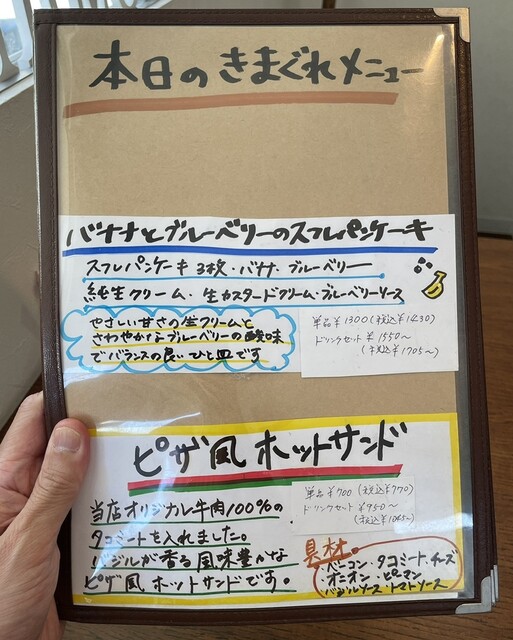 本日のきまぐれメニュー
バナナとブルーベリーのスフレパンケーキ
スフレパンケーキ3枚・バナナ・ブルーベリー
純生クリーム・生カスタードクリーム・ブルーベリーソース
やさしい甘さの生クリームと
さわやかなブルーベリーの酸味
でバランスの良いひと皿です
単品¥1300(税込¥1430)
ドリンクセット¥1550〜
(税込¥1705〜)
ピザ風ホットサンド
当店オリジナル牛肉100%の
タコミートを入れました。
バジルが香る風味豊かな
ピザ風ホットサンドです。
単品¥700(税込¥770)
ドリンクセット¥950〜
(税込¥1045〜)
具材
・ベーコン・タコミート・チーズ
オニオン・ピーマン
バジルソース・トマトソース